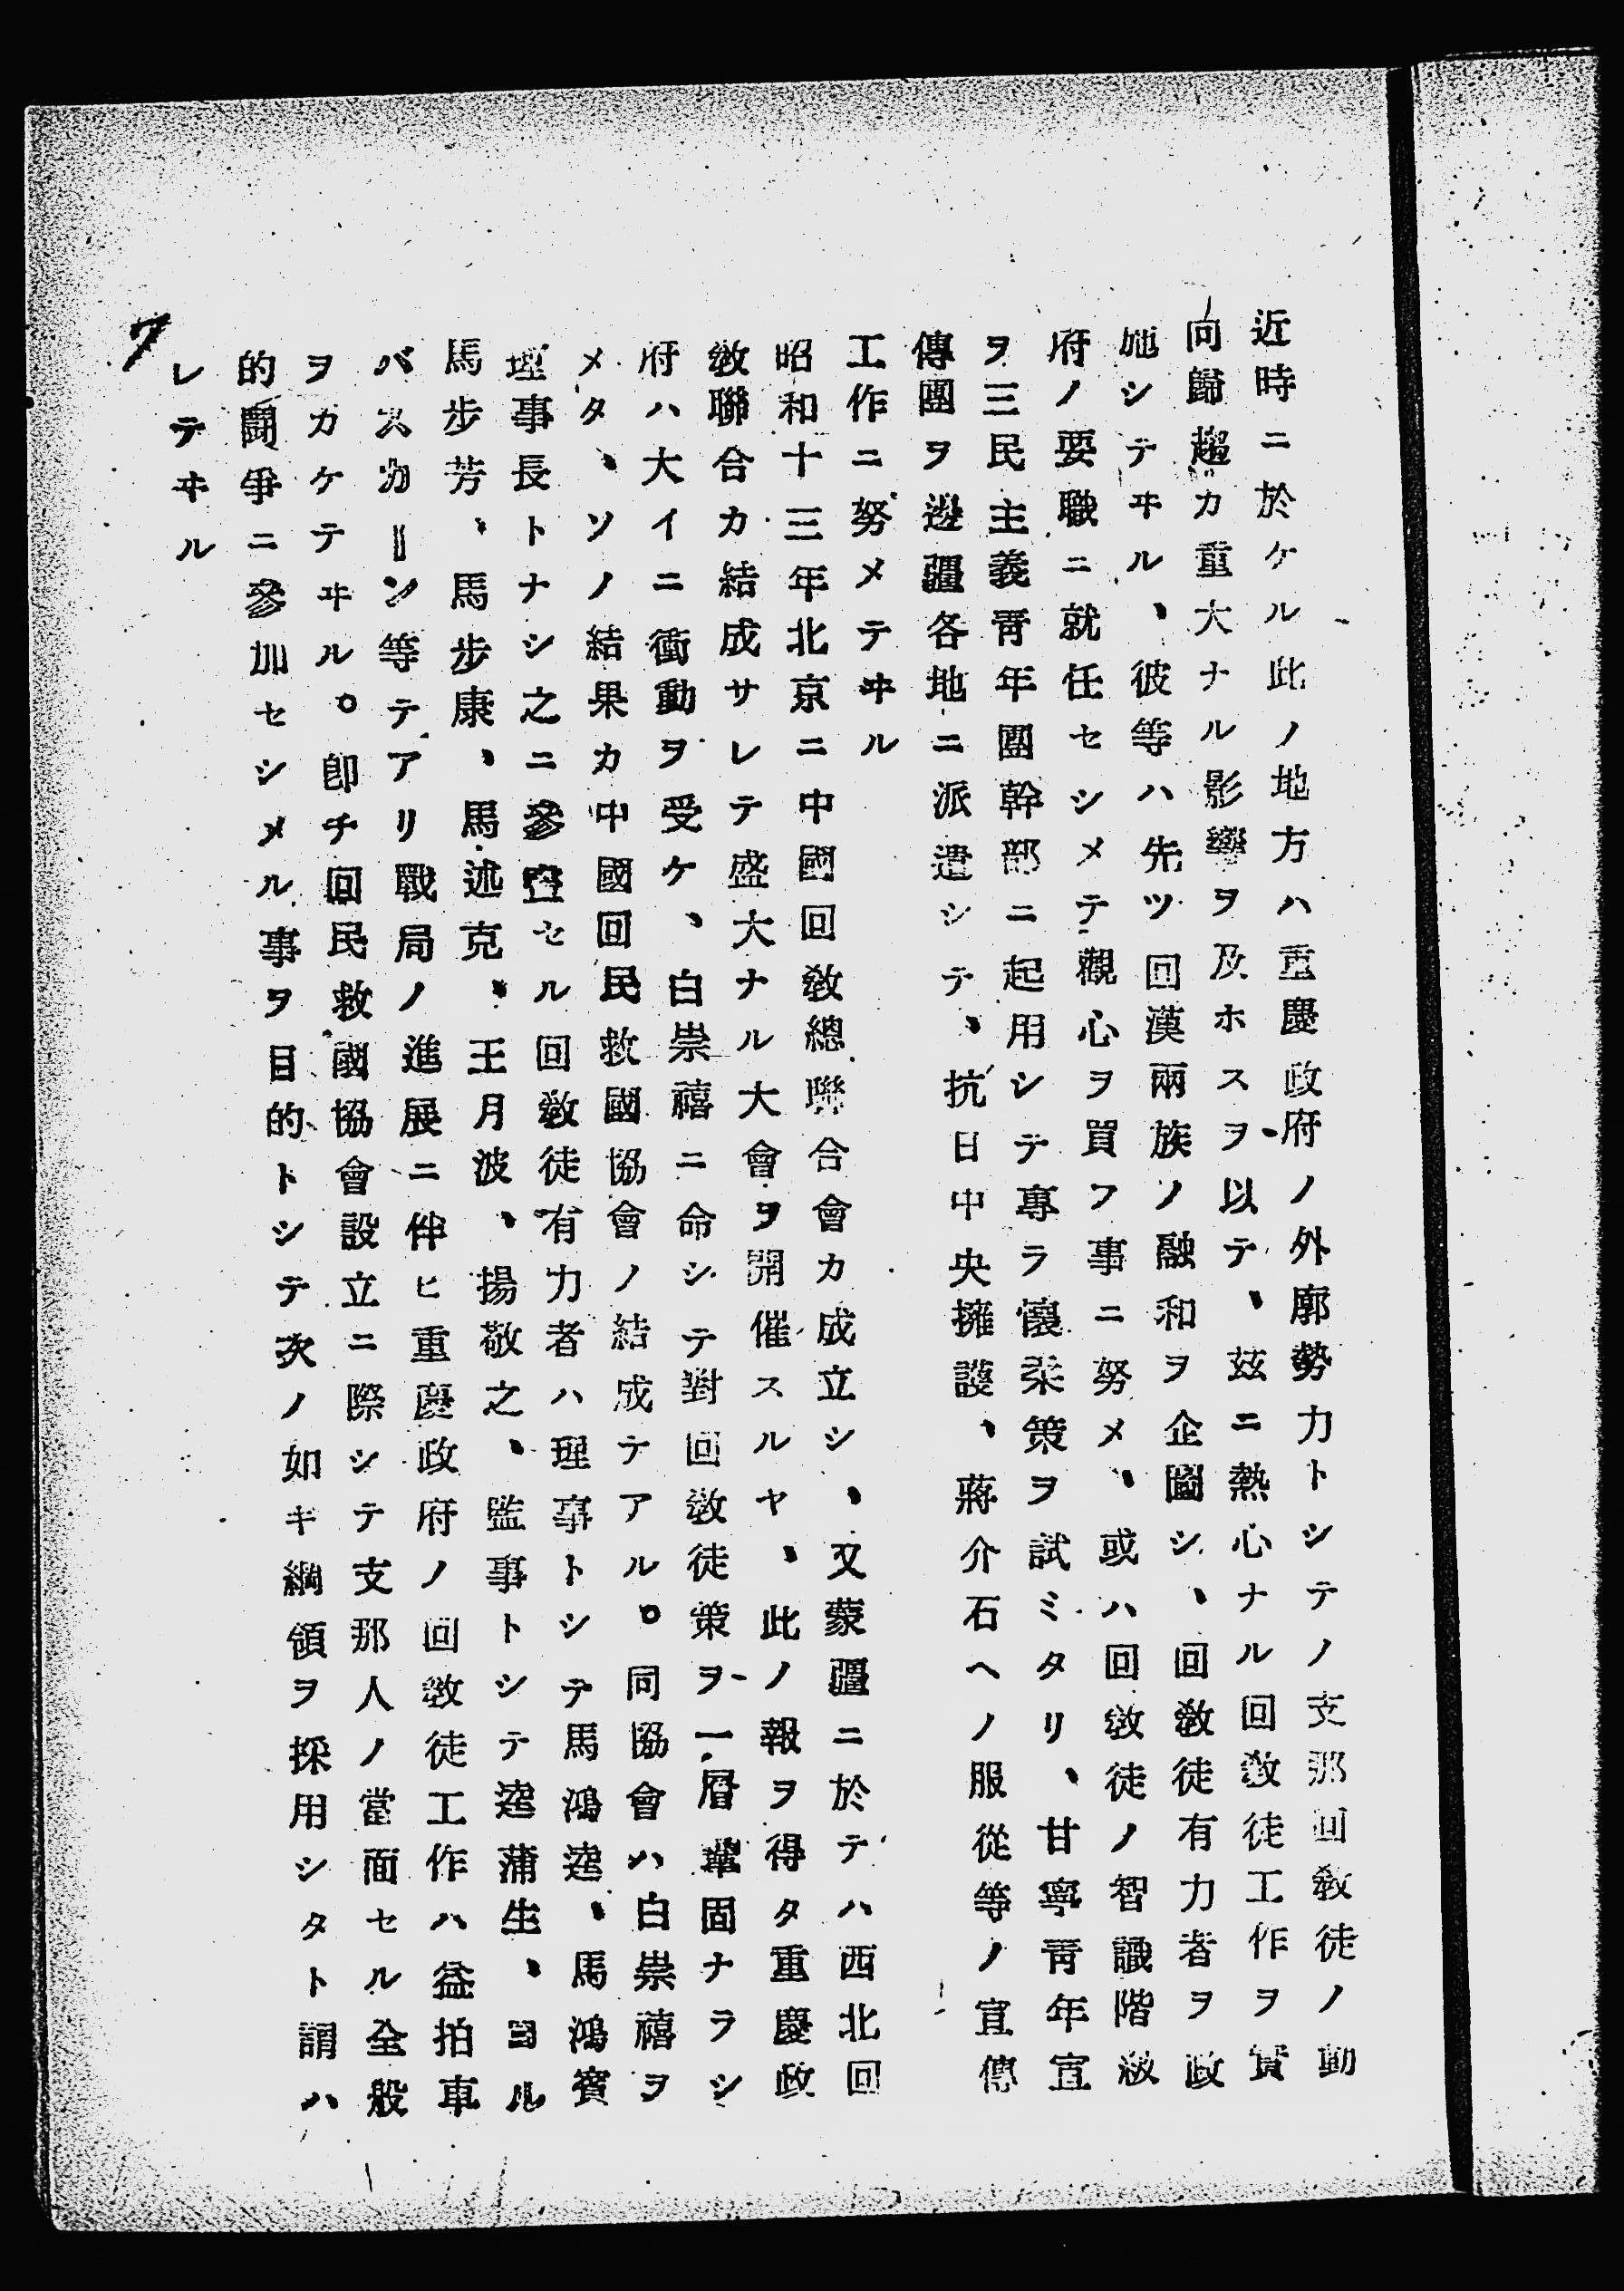 近時ニ於ケル此ノ地方ハ重慶政府ノ外廓勢力トシテノ支那回敎徒ノ動
向歸趨カ重大ナル影響ヲ及ホスヲ以テ、茲ニ熱心ナル回敎徒工作ヲ實
施シテヰル、彼等ハ先ツ回漢兩族ノ融和ヲ企圖シ、回敎徒有力者ヲ政
府ノ要職ニ就任セシメテ觀心ヲ買フ事ニ努メ、或ハ回敎徒ノ智識階級
ヲ三民主義靑年團幹部ニ起用シテ專ラ懷柔策ヲ試ミタリ、甘寧靑年宣
傳團ヲ邊疆各地ニ派遣シテ、抗日中央擁護、蔣介石ヘノ服從等ノ宣傳
工作ニ努メテヰル
昭和十三年北京ニ中國回敎總聯合會カ成立シ、又蒙疆ニ於テハ西北回
敎聯合カ結成サレテ盛大ナル大會ヲ開催スルヤ、此ノ報ヲ得タ重慶政
府ハ大イニ衝動ヲ受ケ、白崇禧ニ命シテ對回敎徒策ヲ一層鞏固ナラシ
メタ、ソノ結果カ中國回民救國協會ノ結成テアル。同協會ハ白崇禧ヲ
理事長トナシ之ニ參セル回敎徒有力者ハ理事トシテ馬鴻逵、馬鴻賓
馬步芳、馬步康、馬述克、王月波、揚敬之、監事トシテ逵蒲生、ヨル
バスカーン等テアリ戰局ノ進展ニ伴ヒ重慶政府ノ回敎徒工作ハ益拍車
ヲカケテヰル。卽チ回民救國協會設立ニ際シテ支那人ノ當面セル全般
的鬪爭ニ參加セシメル事ヲ目的トシテ次ノ如キ綱領ヲ採用シタト謂ハ
レテヰル
7